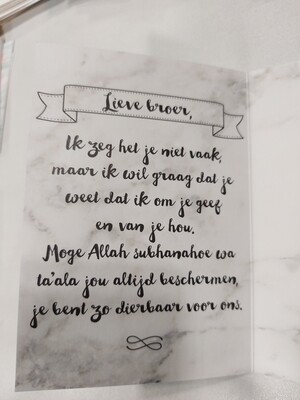 Lieve broer,
Ik zeg het je niet vaak,
maar ik wil graag dat je
weet dat ik om je geef
en van je hou.
Moge Allah subhanahoe wa
ta'ala jou altijd beschermen,
je bent zo dierbaar voor ons.